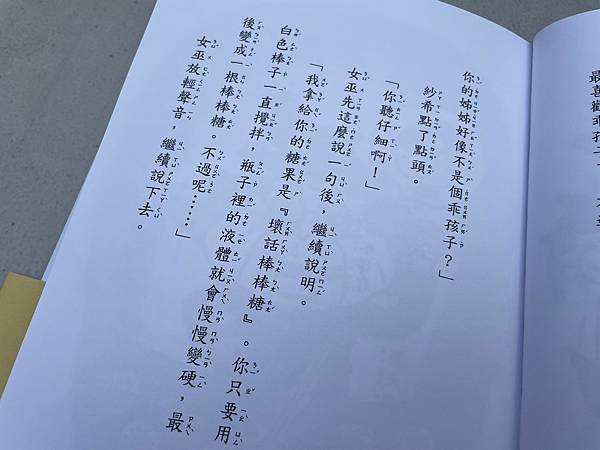 最喜歡乖孩子
你的姊姊好像不是個乖孩子？」
紗希點了點頭。
「你聽仔細啊！」
女巫先這麼說一句後，繼續說明。
「我拿給你的糖果是『壞話棒棒糖』。你只要用
白色棒子一直攪拌，瓶子裡的液體就會慢慢變硬，最
後變成一根棒棒糖。不過呢……」
女巫放輕聲音，繼續說下去。